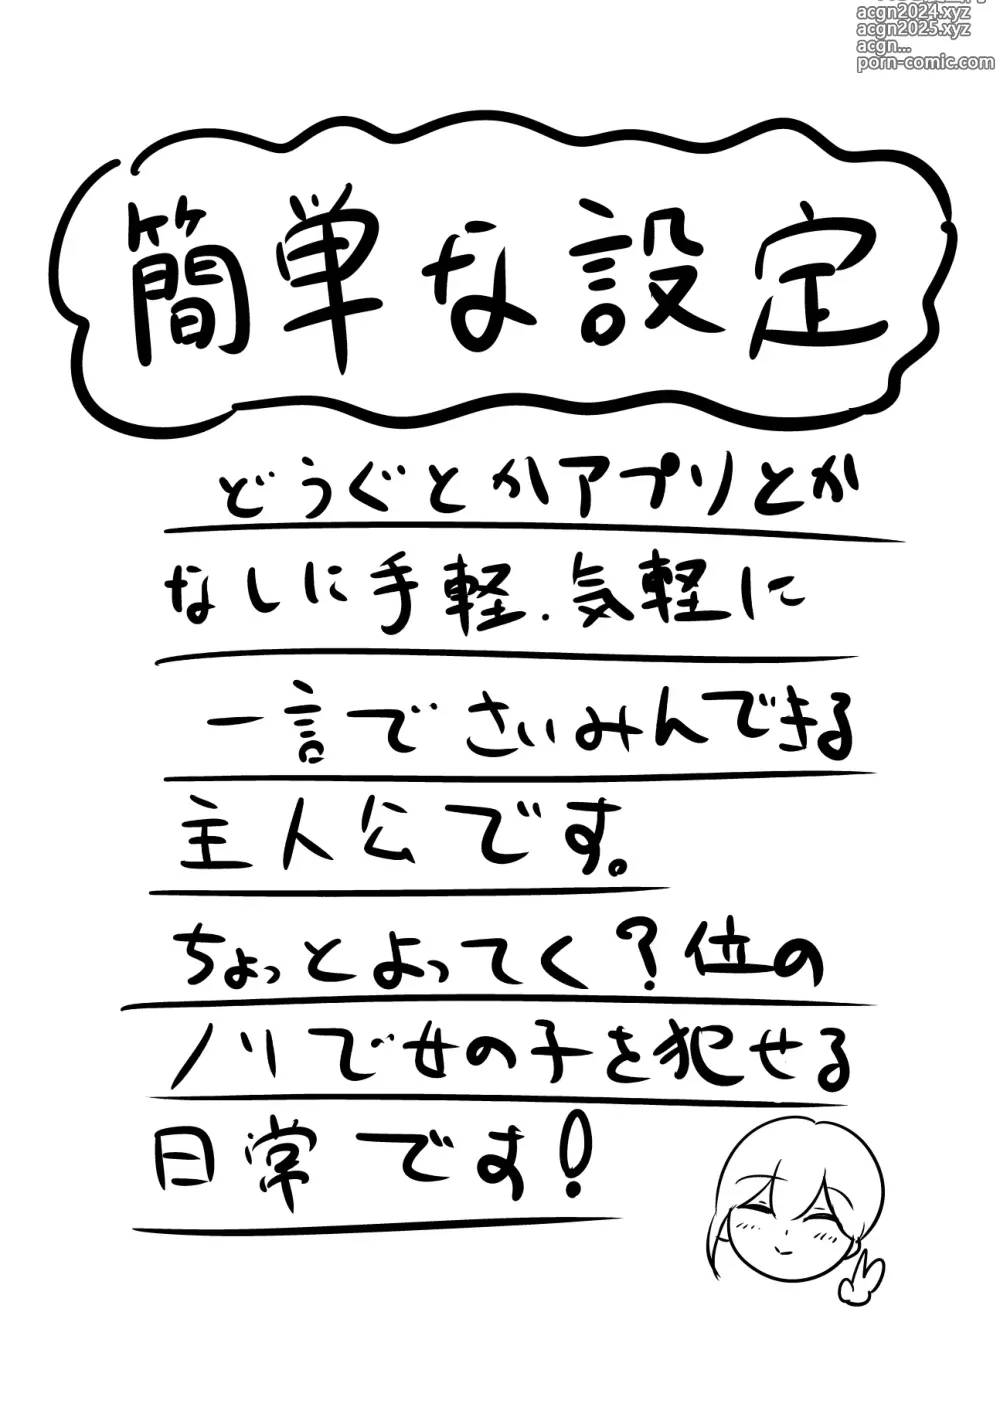 acgn2024.xyz
acgn2025.xyz
acgn...
porn-comic.com
簡単な設定
どうぐとかアプリとか
なしに手軽.気軽に
一言でさいみんできる
主人公です。
ちょっとよってく?位の
ノリで女の子を犯せる
日常です!